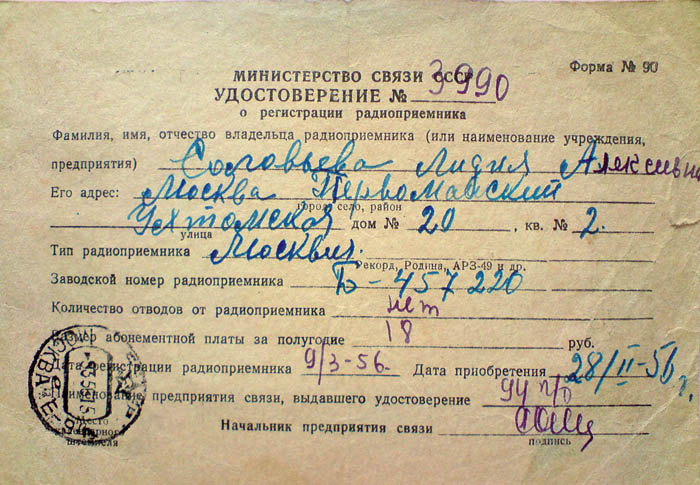 Форма № 90
МИНИСТЕРСТВО СВЯЗИ СССР
УДОСТОВЕРЕНИЕ № 3990
о регистрации радиоприемника
Фамилия, имя, отчество владельца радиоприемника (или наименование учреждения,
предприятия) Соловьева Лидия Алексеевна
Его адрес: Москва Первомайский
город, село, район
Ухтомская дом № 20, кв. № 2.
улица
Тип радиоприемника Москвич.
Рекорд, Родина, АРЗ-49 и др.
Заводской номер радиоприемника Б-457220
Количество отводов от радиоприемника нет
Размер абонементной платы за полугодие 18 руб.
Дата регистрации радиоприемника 9/3-56. Дата приобретения 28/II-56 г.
Наименование предприятия связи, выдавшего удостоверение 94 п/о
Начальник предприятия связи
Место
календарного
штемпеля
подпись
МОСКВА